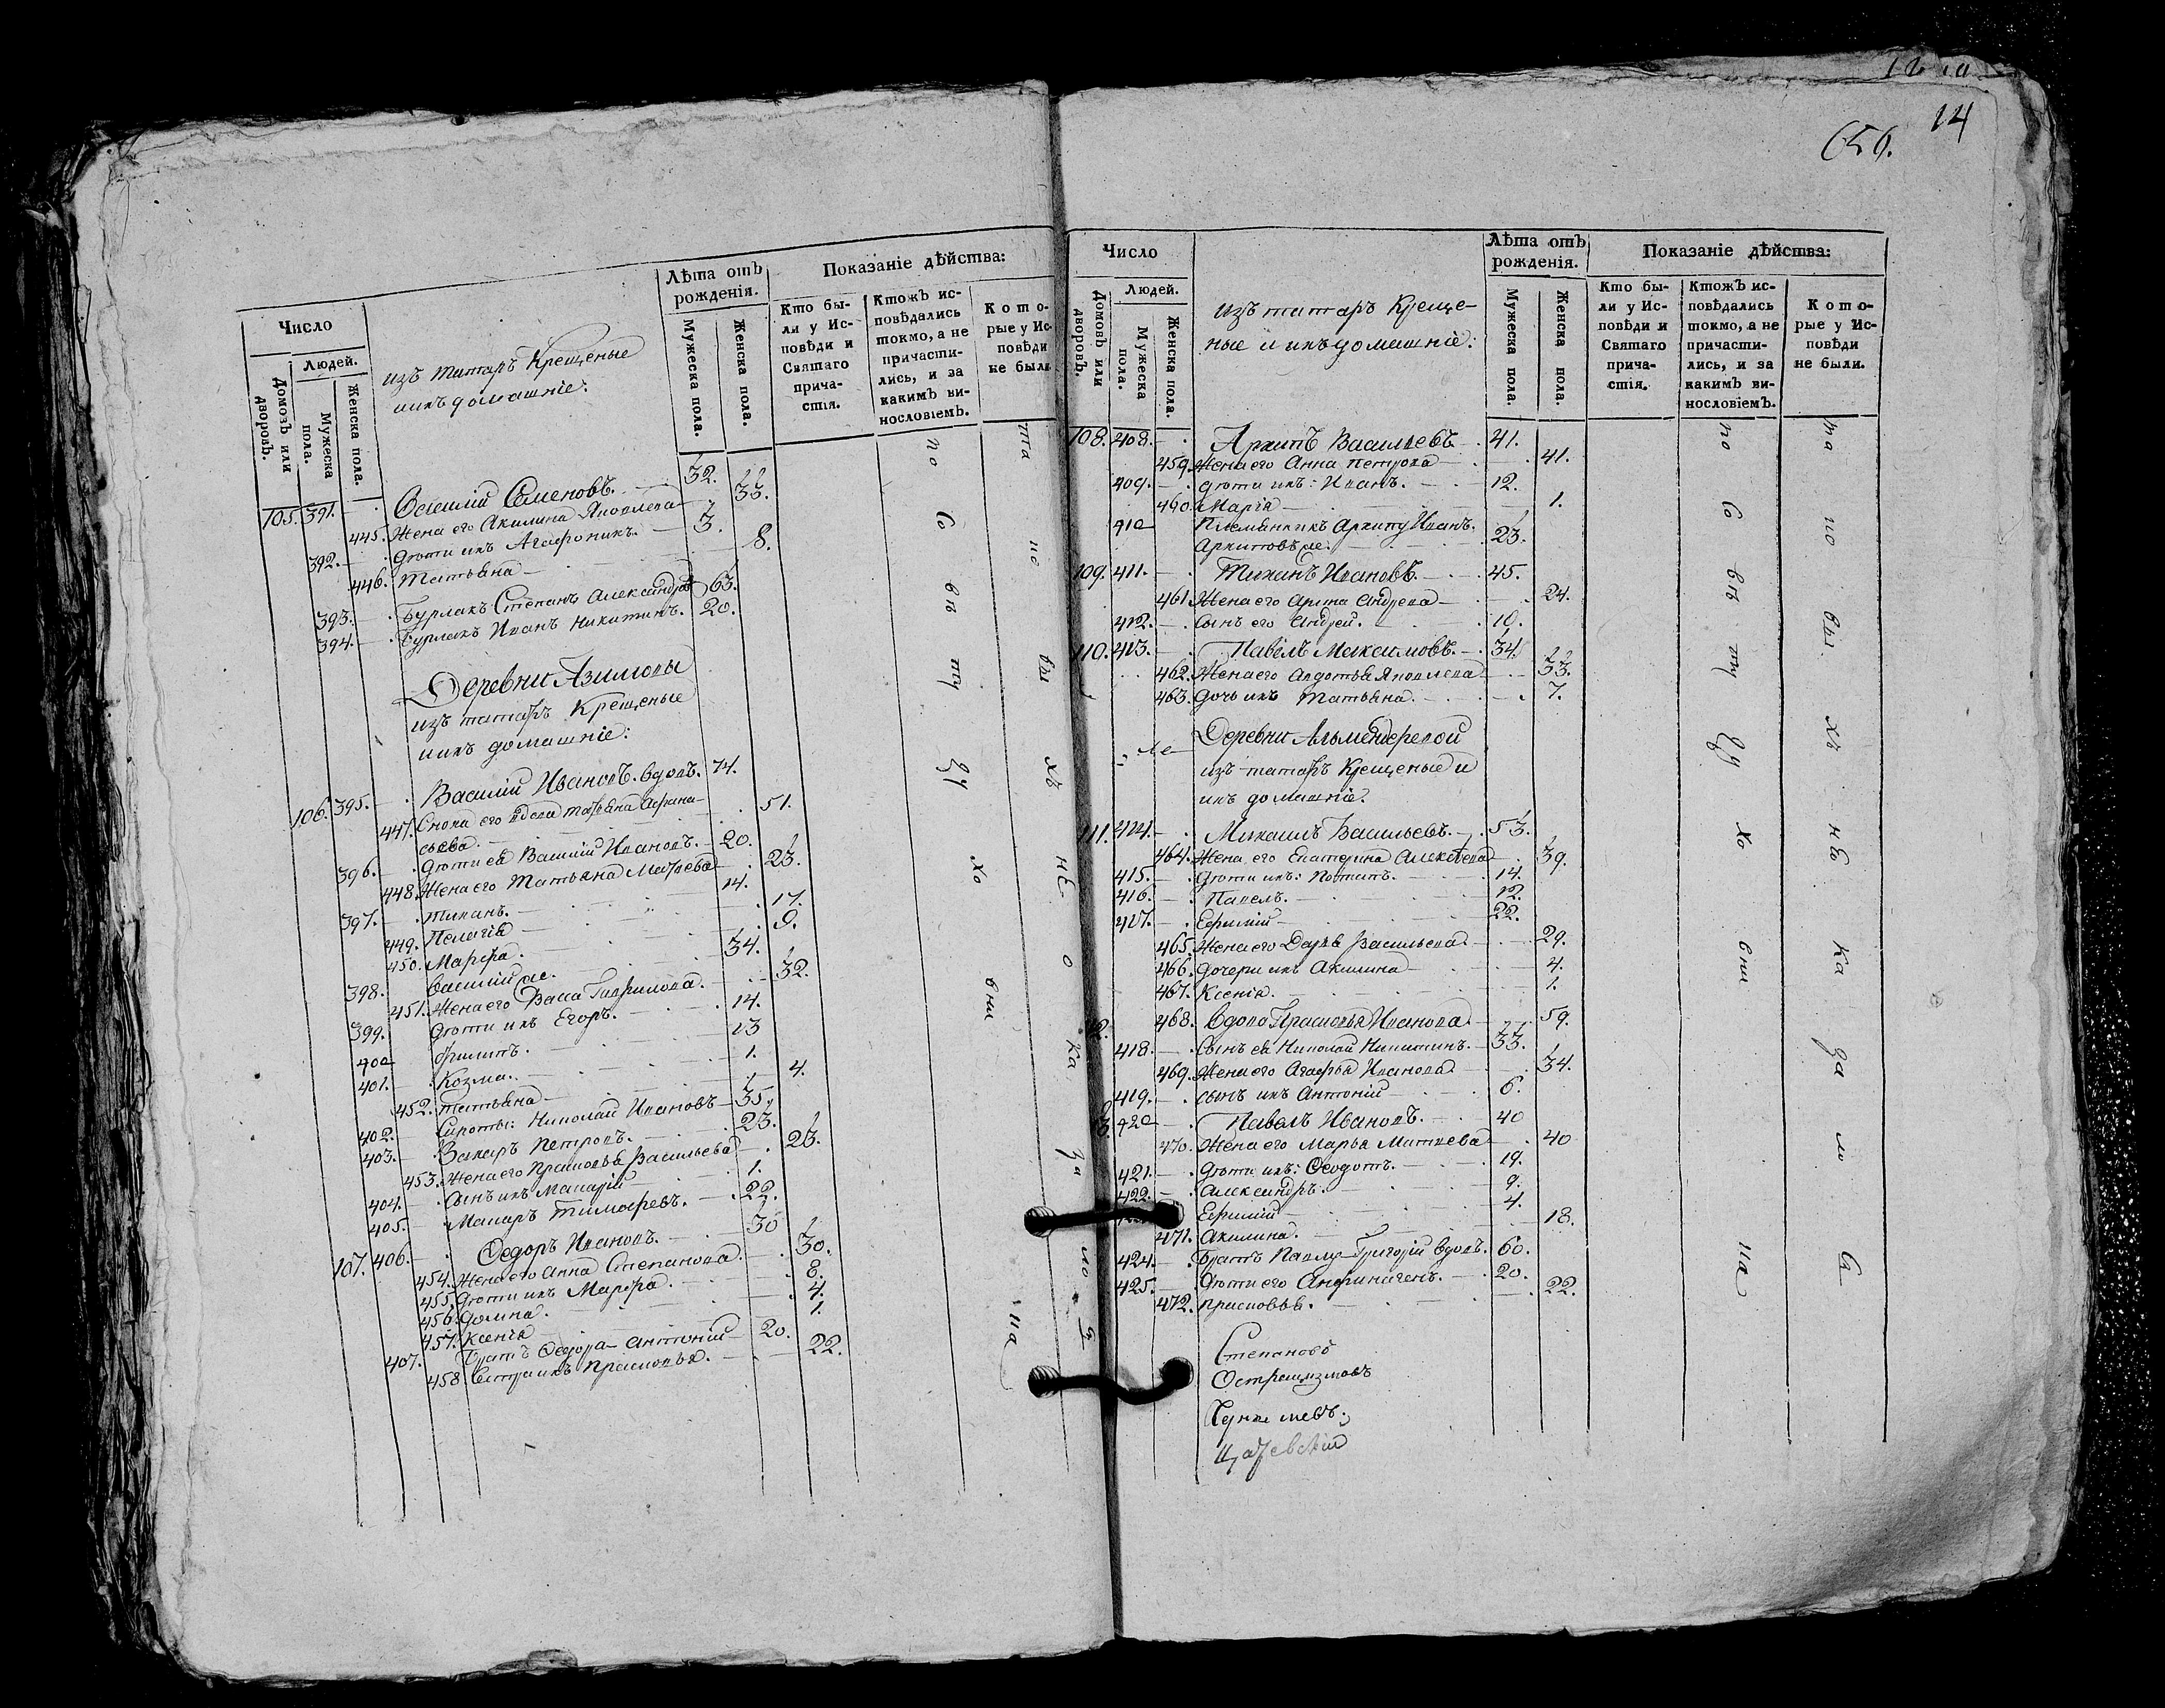 Число
Людей.
Домовъ или дворовъ.
Мужеска пола.
Женска пола.
изъ татаръ Крещеные
и ихъ домашніе:
Лѣта отъ рожденія.
Мужеска пола.
Женска пола.
Показаніе дѣйства:
Кто были у Исповѣди и Святаго причастія.
Ктожъ исповѣдались токмо, а не причастились, и за какимъ винословіемъ.
Которые у Исповѣди не были.
105. 391. Семеновъ. 32.
445. Жена его Акилина Яковлева 33.
392. Дѣти ихъ Агафоникъ. 3.
446. Татьяна 8.
393. Бурлакъ Степанъ Александровъ 63.
394. Бурлакъ Иванъ Никитинъ. 20.
Деревни Азимовы
изъ татаръ Крещеные
и ихъ домашніе:
106. 395. Василій Ивановъ вдовъ. 74.
447. Сноха его вдова Татьяна Афана-
сьева. 51.
396. Дѣти ея Василій Ивановъ. 20.
448. Жена его Татьяна Матвѣева 23.
397. Тиханъ. 14.
449. Пелагія 17.
450. Марфа. 9.
398. Василій же. 34.
451. Жена его Васса Гаврилова. 32.
399. Дѣти ихъ Егоръ. 14.
400 Филипъ. 13
401. Козма. 1.
452. Татьяна 4.
402. Сироты: Николай Ивановъ 35.
403. Захаръ Петровъ. 23.
453. Жена его Прасковья Васильева 23.
404. Сынъ ихъ Макарій 1.
405. Макаръ Тимофѣевъ. 22.
107. 406. Ѳедоръ Ивановъ. 30
454. Жена его Анна Степанова. 30.
455. Дѣти ихъ Марфа. 8.
456. Домна. 4.
457. Ксенія 1.
407. Братъ Ѳедора Антоній 20.
458 Сестра ихъ Прасковья. 22.
по со въ ту зу хо вни на
та не вы хъ не ка за мо са
14
656.
Число
Людей.
Домовъ или дворовъ.
Мужеска пола.
Женска пола.
изъ татаръ Креще-
ные и ихъ домашніе:
Лѣта отъ рожденія.
Мужеска пола.
Женска пола.
Показаніе дѣйства:
Кто были у Исповѣди и Святаго причастія.
Ктожъ исповѣдались токмо, а не причастились, и за какимъ винословіемъ.
Которые у Исповѣди не были.
108. 408. Архипъ Васильевъ 41.
459. Жена его Анна Петрова 41.
409. Дѣти ихъ: Иванъ. 12.
460. Марія 1.
410 Племянникъ Архипу Иванъ
Архиповъ же. 23.
109. 411. Тиханъ Ивановъ. 45.
461. Жена его Арина Андреева 24.
412. Сынъ его Андрей. 10.
110. 413. Павелъ Максимовъ. 34.
462. Жена его Авдотья Яковлева 33.
463. Дочь ихъ Татьяна. 7.
Деревни Альмендеревой
изъ татаръ Крещеные и
ихъ домашніе.
111. 414. Михаилъ Васильевъ. 53.
464. Жена его Екатерина Алексѣева 39.
415. Дѣти ихъ: Потапъ. 14.
416. Павелъ. 12.
417. Ефимій 22.
465. Жена его Дарья Васильева. 29.
466. Дочери ихъ Акилина 4.
467. Ксенія. 1.
468. Вдова Прасковья Иванова. 59.
418. Сынъ ея Николай Никитинъ. 33.
469. Жена его Агафья Иванова 34.
419. Сынъ ихъ Антоній 6.
420 Павелъ Ивановъ. 40
470. Жена его Марья Матвѣева 40
421. Дѣти ихъ: Ѳеодотъ. 19.
422. Александръ. 9.
Ефимій 4.
471. Акилина. 18.
424. Братъ Павлу Григорій вдовъ. 60.
425. Дѣти его Анфиногенъ. 20.
472. Прасковья. 22.
по со въ ту зу хо вни на
но вы хъ нѣ ка за мо са
Степаново